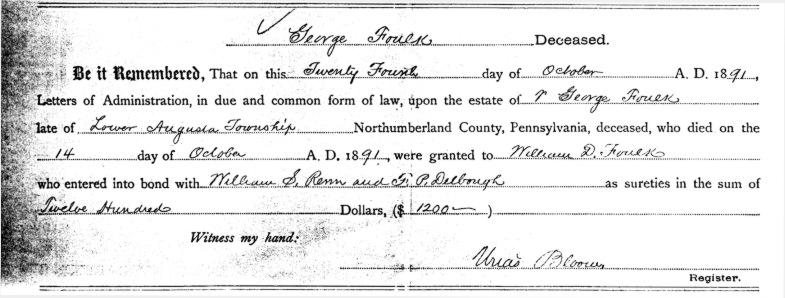 George Foulk Deceased.
Be it Remembered, That on this Twenty Fourth day of October A. D. 1891,
Letters of Administration, in due and common form of law, upon the estate of George Foulk
late of Lower Augusta Township Northumberland County, Pennsylvania, deceased, who died on the
14 day of October A. D. 1891, were granted to William D. Foulk
who entered into bond with William S. Renn and G. P. Delbough as sureties in the sum of
Twelve Hundred Dollars, ($ 1200 — )
Witness my hand:
Urias Bloom
Register.